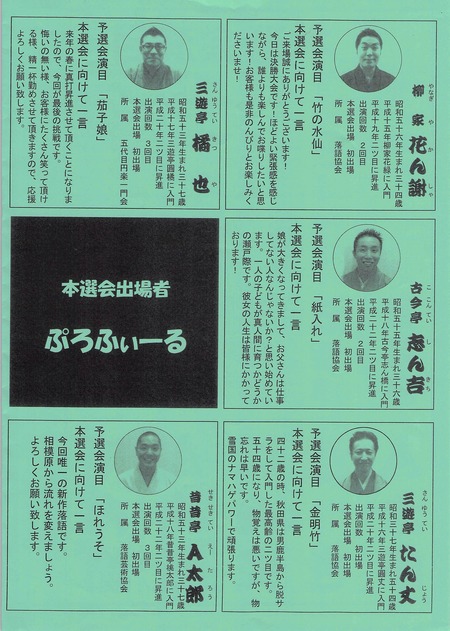 柳家 花ん謝
やなぎ や か しゃ
昭和五十六年生まれ三十四歳
平成十五年柳家花緑に入門
平成十九年二ツ目に昇進
出演回数 2回目
本選会出場 初出場
所属 落語協会
予選会演目「竹の水仙」
本選会に向けて一言
ご来場誠にありがとうございます!
今日は決勝大会です!ほどよい緊張感を感じ
ながら、誰よりも楽しんでお喋りしたいと思
います!お客様も是非のんびりとお楽しみく
ださいませ!
三遊亭 橘也
さんゆうてい きつ や
昭和五十三年生まれ三十七歳
平成十七年三遊亭圓橘に入門
平成二十年二ツ目に昇進
出演回数 3回目
本選会出場 初出場
所属 五代目円楽一門会
予選会演目「茄子娘」
本選会に向けて一言
来年の春に真打昇進させて頂くことになりま
したので、今回が最後の挑戦です。
悔いの無い様、お客様にたくさん笑って頂け
る様、精一杯勤めさせて頂きますので、応援
よろしくお願い致します。
古今亭 志ん吉
ここんてい し きち
昭和五十五年生まれ三十六歳
平成十八年古今亭志ん橋に入門
平成二十二年二ツ目に昇進
出演回数 2回目
本選会出場 初出場
所属 落語協会
予選会演目「紙入れ」
本選会に向けて一言
娘が大きくなってきまして、お父さんは仕事
してない人なんじゃないか?と思い始めてい
ます。一人の子どもが真人間に育つかどうか
の瀬戸際です。彼女の人生は皆様にかかって
おります!
本選会出場者
ぷろふぃーる
三遊亭 たん丈
さんゆうてい じょう
昭和三十七年生まれ五十四歳
平成十六年三遊亭圓丈に入門
平成二十年二ツ目に昇進
出演回数 2回目
本選会出場 初出場
所属 落語協会
予選会演目「金明竹」
本選会に向けて一言
四十二歳の時、秋田県は男鹿半島から脱サ
ラをして入門した最高齢の二ツ目です。
五十四歳になり、物覚えは悪いですが、物
忘れは早いです。
雪国のナマハゲパワーで頑張ります。
昔昔亭 A太郎
せきせきてい えー たろう
昭和五十三年生まれ三十七歳
平成十八年昔昔亭桃太郎に入門
平成二十二年二ツ目に昇進
出演回数 3回目
本選会出場 初出場
所属 落語芸術協会
予選会演目「ほれうそ」
本選会に向けて一言
今回唯一の新作落語です。
相模原から流れを変えましょう。
よろしくお願い致します。